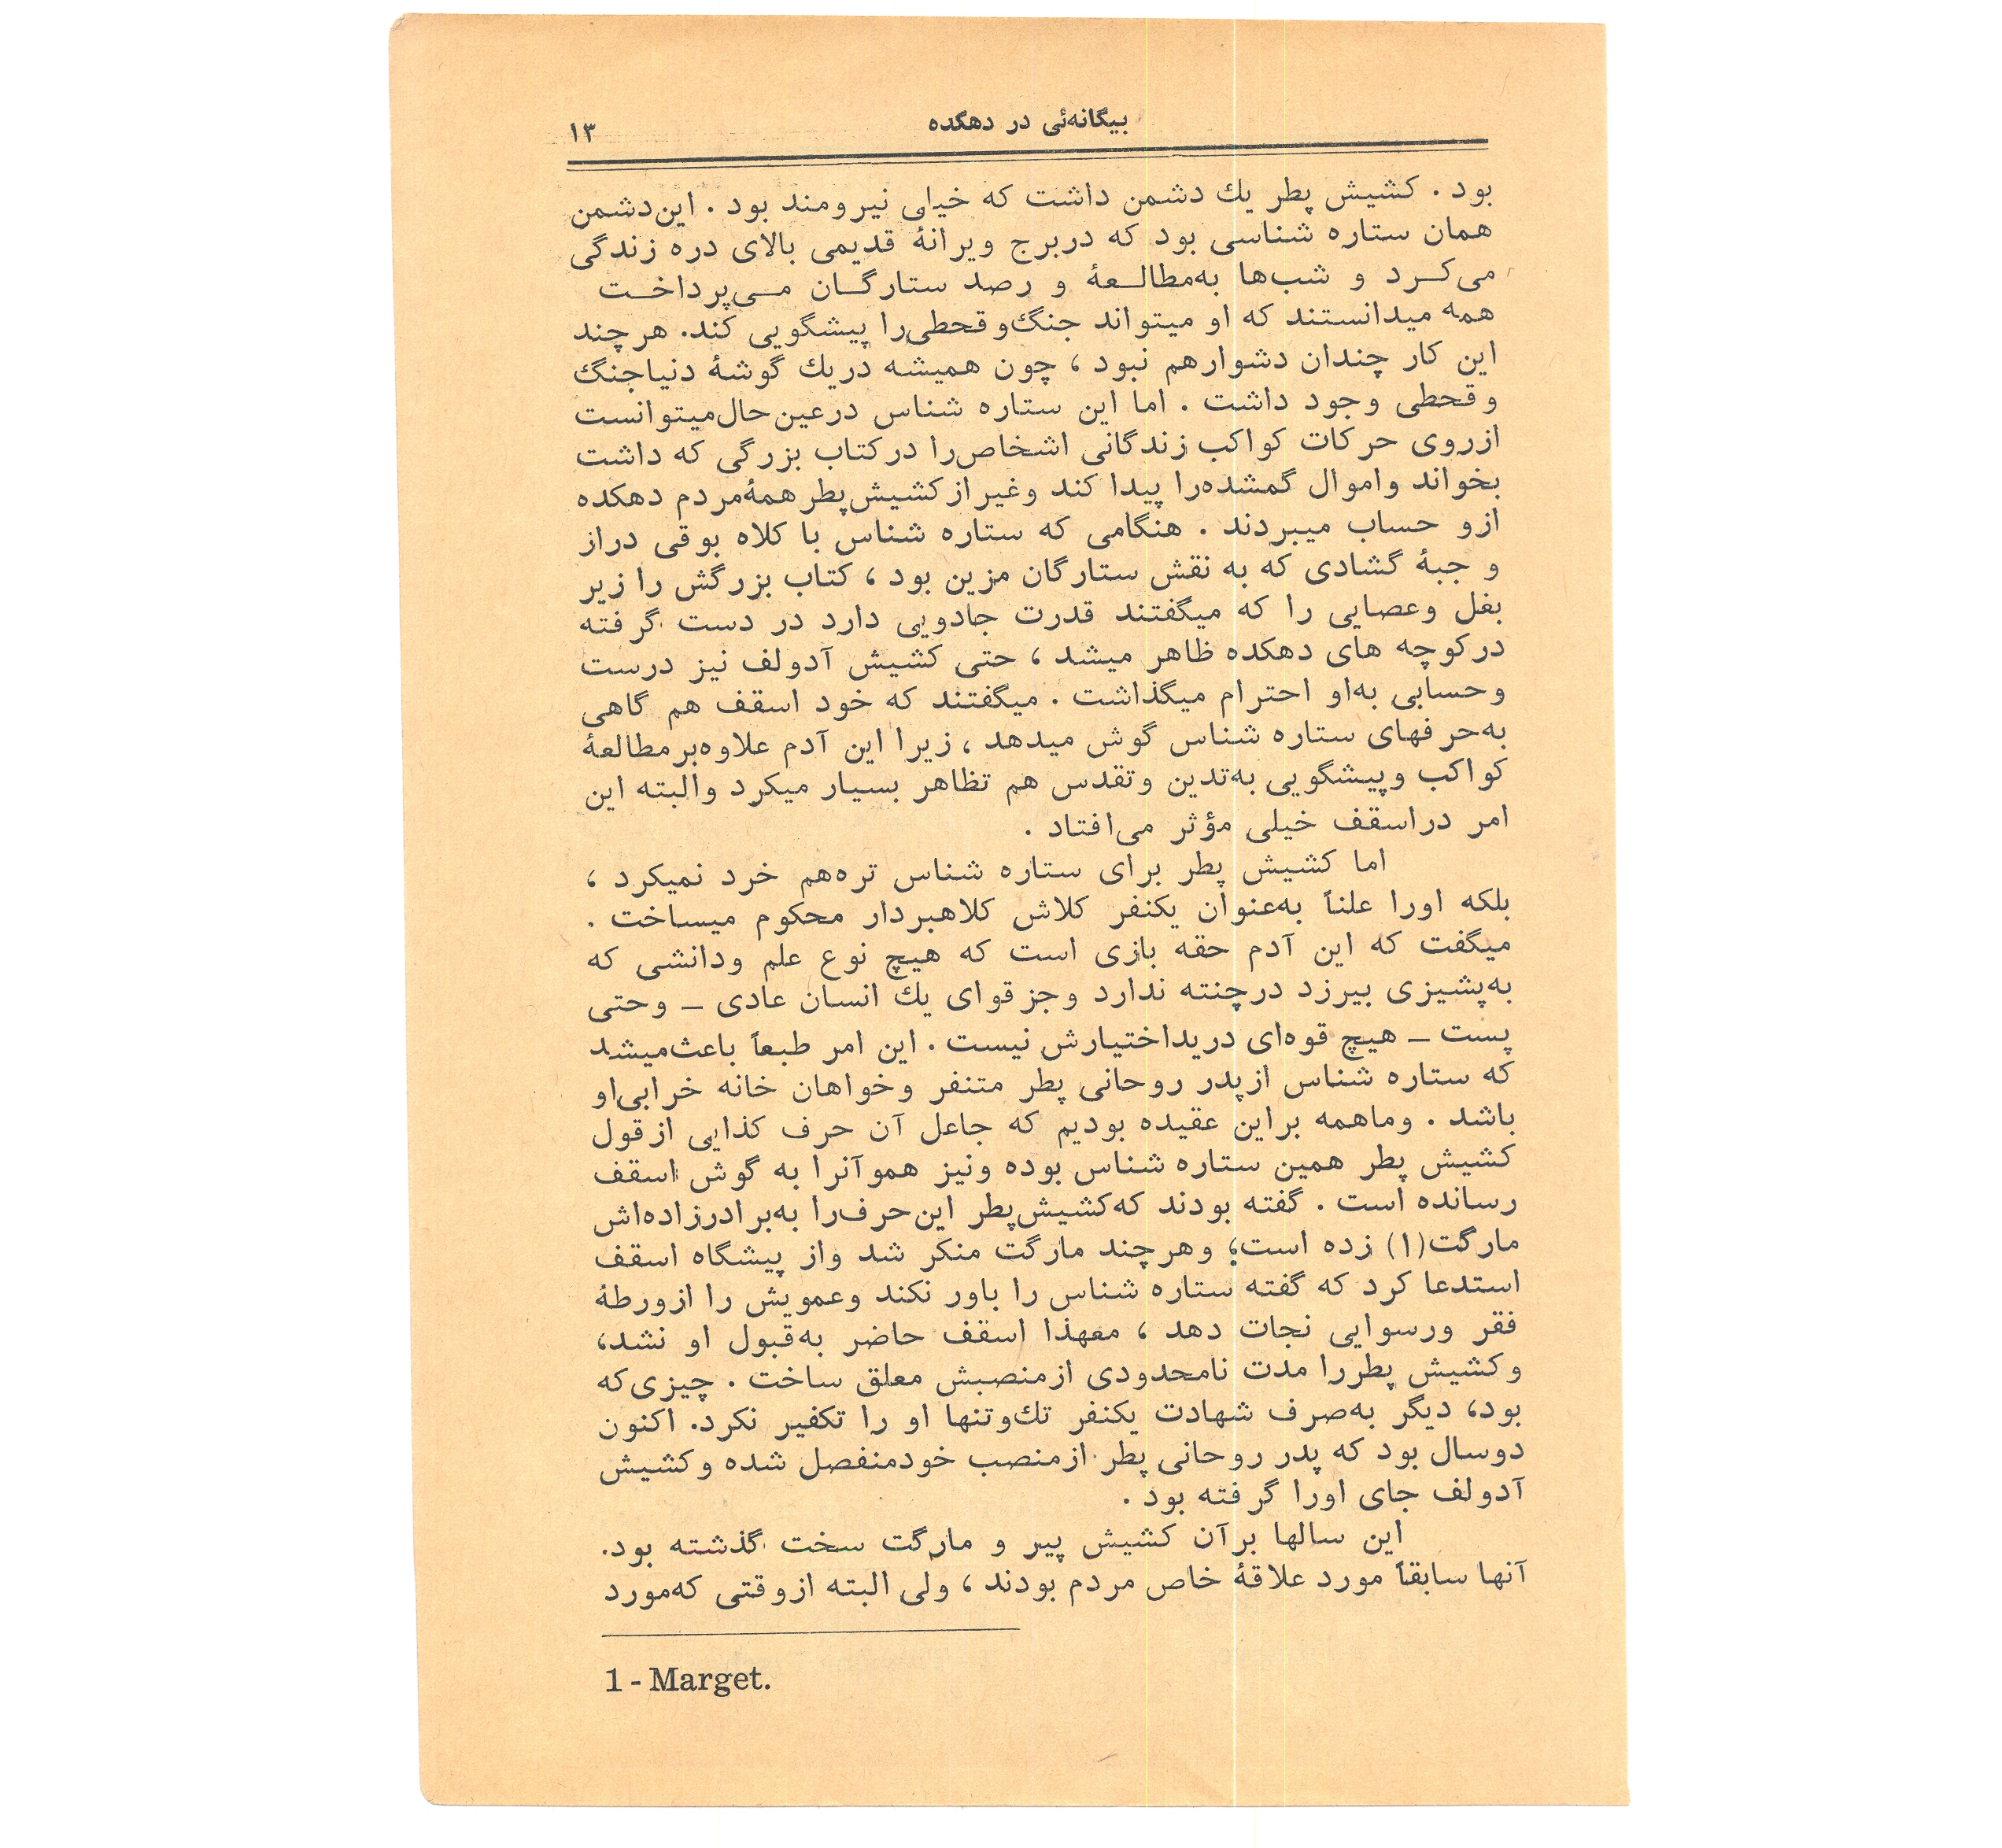 بیگانه‌ئی در دهکده
۱۳
بود . کشیش پطر یك دشمن داشت که خیلی نیرومند بود . این‌دشمن
همان ستاره شناسی بود که دربرج ویرانهٔ قدیمی بالای دره زندگی
می‌کـرد و شب‌ها به‌مطالـعهٔ و رصد ستارگـان مـی‌پرداخـت
همه میدانستند که او میتواند جنگ‌وقحطی‌را پیشگویی کند. هرچند
این کار چندان دشوارهم نبود ، چون همیشه دریك گوشهٔ دنیاجنگ
وقحطی وجود داشت . اما این ستاره شناس درعین‌حال‌میتوانست
ازروی حرکات کواکب زندگانی اشخاص‌را درکتاب بزرگی که داشت
بخواند واموال گمشده‌را پیدا کند وغیرازکشیش‌پطرهمهٔ‌مردم دهکده
ازو حساب میبردند . هنگامی که ستاره شناس با کلاه بوقی دراز
و جبهٔ گشادی که به نقش ستارگان مزین بود ، کتاب بزرگش را زیر
بغل وعصایی را که میگفتند قدرت جادویی دارد در دست گرفته
درکوچه های دهکده ظاهر میشد ، حتی کشیش آدولف نیز درست
وحسابی به‌او احترام میگذاشت . میگفتند که خود اسقف هم گاهی
به‌حرفهای ستاره شناس گوش میدهد ، زیرا این آدم علاوه‌برمطالعهٔ
کواکب وپیشگویی به‌تدین وتقدس هم تظاهر بسیار میکرد والبته این
امر دراسقف خیلی مؤثر می‌افتاد .
اما کشیش پطر برای ستاره شناس تره‌هم خرد نمیکرد ،
بلکه اورا علناً به‌عنوان یکنفر کلاش کلاهبردار محکوم میساخت .
میگفت که این آدم حقه بازی است که هیچ نوع علم ودانشی که
به‌پشیزی بیرزد درچنته ندارد وجزقوای یك انسان عادی ــ وحتی
پست ــ هیچ قوه‌ای دریداختیارش نیست . این امر طبعاً باعث‌میشد
که ستاره شناس ازپدر روحانی پطر متنفر وخواهان خانه خرابی‌او
باشد . وماهمه براین عقیده بودیم که جاعل آن حرف کذایی ازقول
کشیش پطر همین ستاره شناس بوده ونیز هموآنرا به گوش اسقف
رسانده است . گفته بودند که‌کشیش‌پطر این‌حرف‌را به‌برادرزاده‌اش
مارگت(۱) زده است؛ وهرچند مارگت منکر شد واز پیشگاه اسقف
استدعا کرد که گفته ستاره شناس را باور نکند وعمویش را ازورطهٔ
فقر ورسوایی نجات دهد ، معهذا اسقف حاضر به‌قبول او نشد،
وکشیش پطررا مدت نامحدودی ازمنصبش معلق ساخت . چیزی‌که
بود، دیگر به‌صرف شهادت یکنفر تك‌وتنها او را تکفیر نکرد. اکنون
دوسال بود که پدر روحانی پطر ازمنصب خودمنفصل شده وکشیش
آدولف جای اورا گرفته بود .
این سالها برآن کشیش پیر و مارگت سخت گذشته بود.
آنها سابقاً مورد علاقهٔ خاص مردم بودند ، ولی البته ازوقتی که‌مورد
1 - Marget.